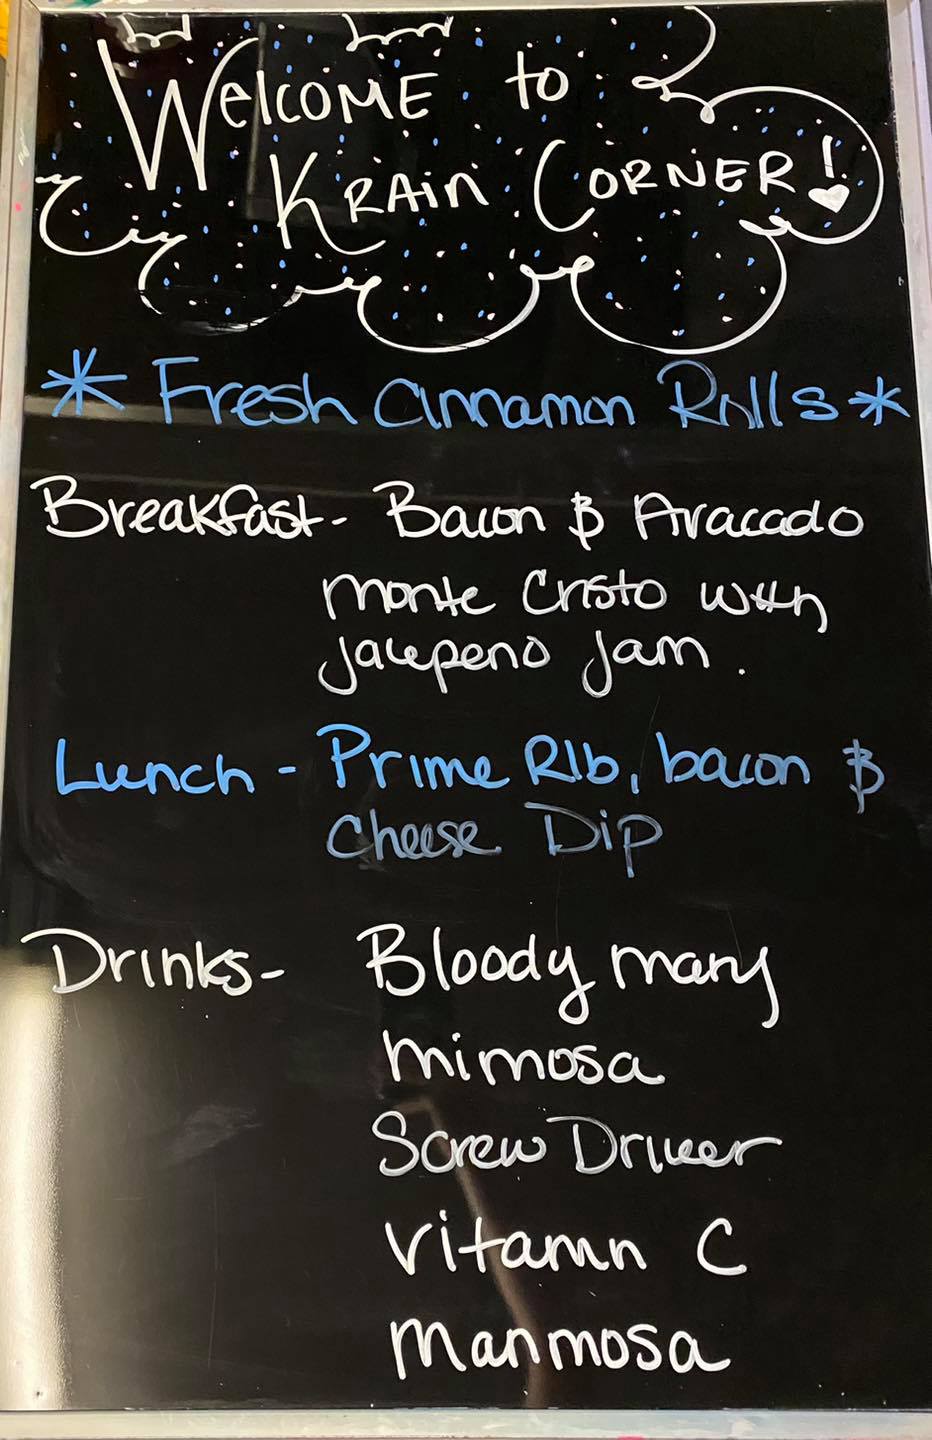 Welcome to
Krain Corner!
* Fresh Cinnamon Rolls *
Breakfast - Bacon & Avacado
monte Cristo with
jalepeno jam.
Lunch - Prime Rib, bacon &
Cheese Dip
Drinks - Bloody mary
mimosa
Screw Driver
Vitamn C
manmosa